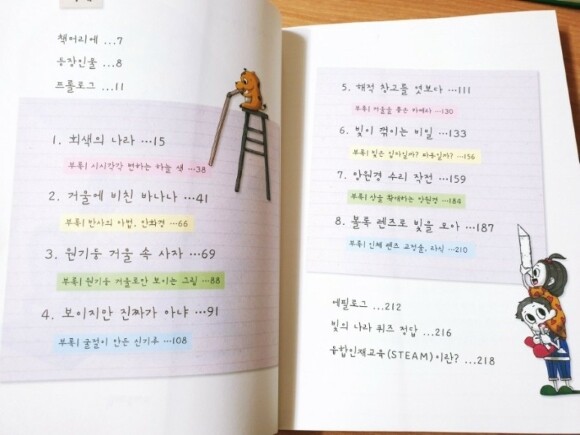 책머리에 …7
등장인물 …8
프롤로그 …11
1. 회색의 나라 …15
부록| 시시각각 변하는 하늘 색 …38
2. 거울에 비친 바나나 …41
부록| 반사의 마법, 만화경 …66
3. 원기둥 거울 속 사자 …69
부록| 원기둥 거울로만 보이는 그림 …88
4. 보이지만 진짜가 아냐 …91
부록| 굴절이 만든 신기루 …108
5. 해적 창고를 엿보다 …111
부록| 거울을 품은 카메라 …130
6. 빛이 꺾이는 비밀 …133
부록| 빛은 입자일까? 파동일까? …156
7. 망원경 수리 작전 …159
부록| 상을 확대하는 망원경 …184
8. 볼록 렌즈로 빛을 모아 …187
부록| 인체 렌즈 교정술, 라식 …210
에필로그 …212
빛의 나라 퀴즈 정답 …216
융합인재교육(STEAM)이란? …218